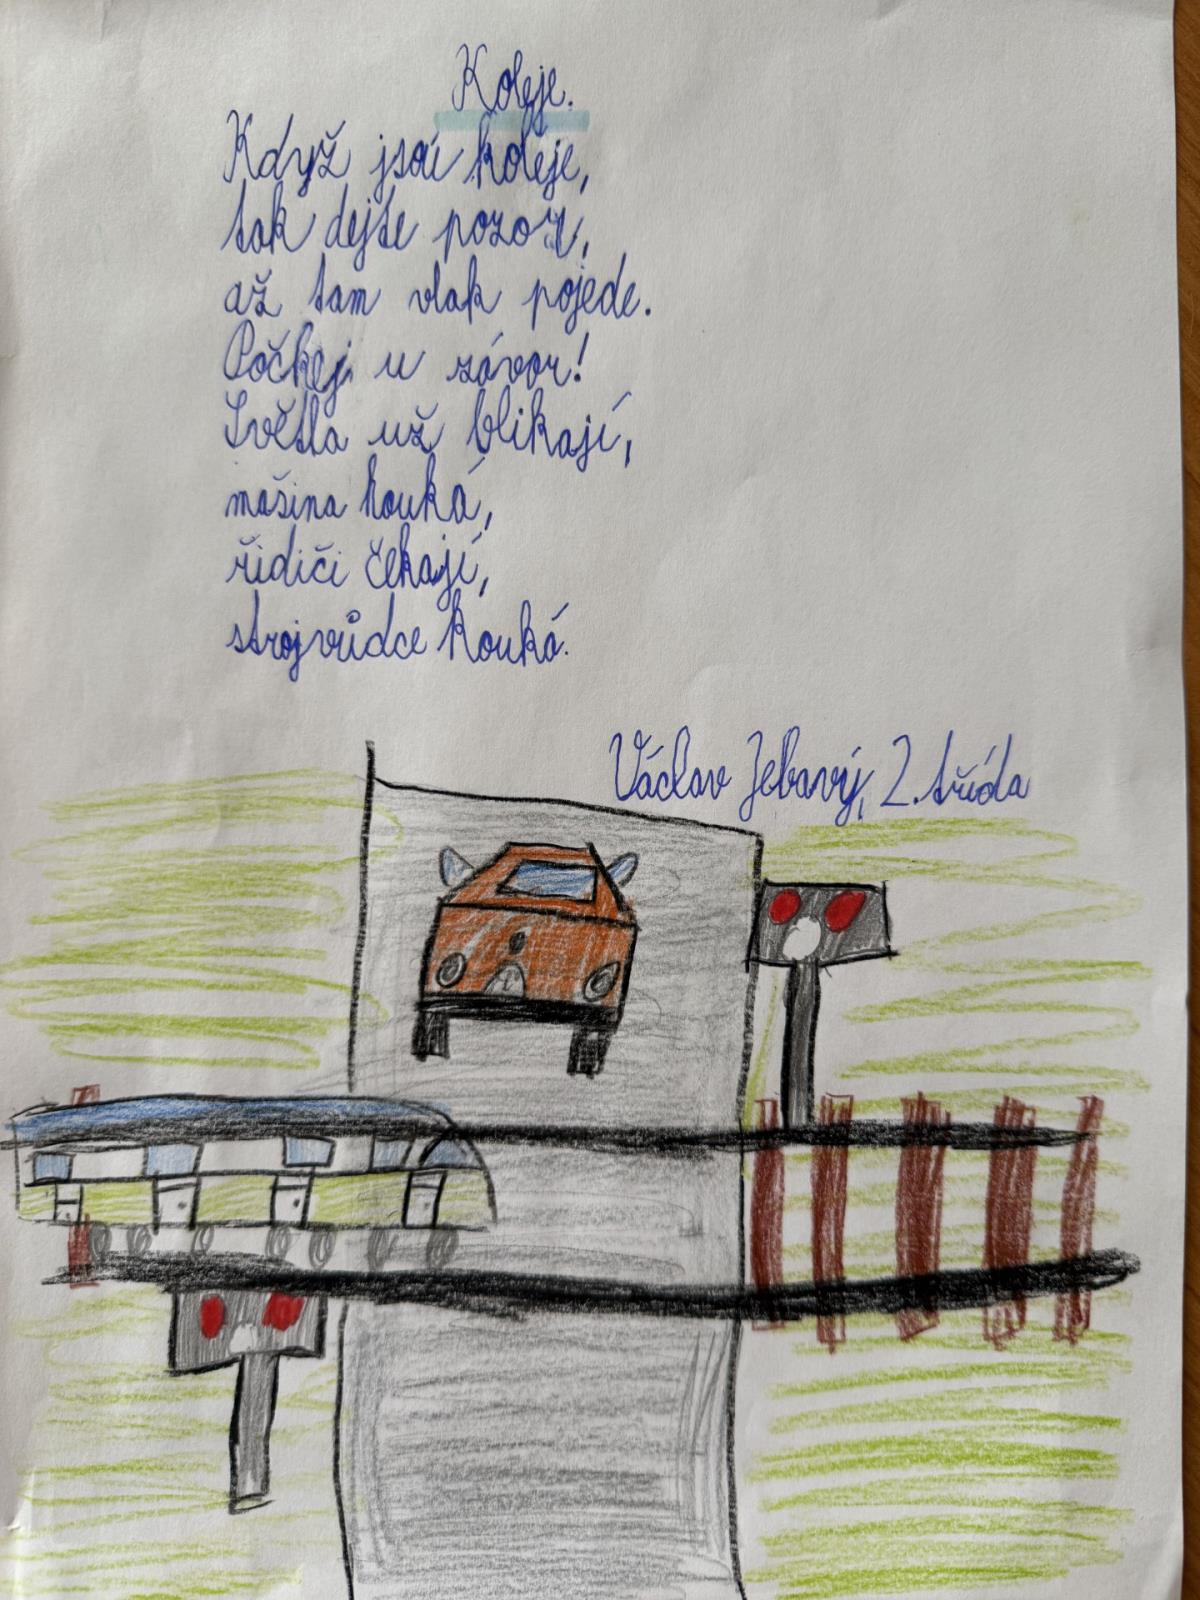 Koleje.
Když jsou koleje,
tak dejte pozor,
až tam vlak pojede.
Počkej u závor!
Světla už blikají,
mašina houká,
řidiči čekají,
strojvůdce kouká.
Václav Jebavý, 2. třída